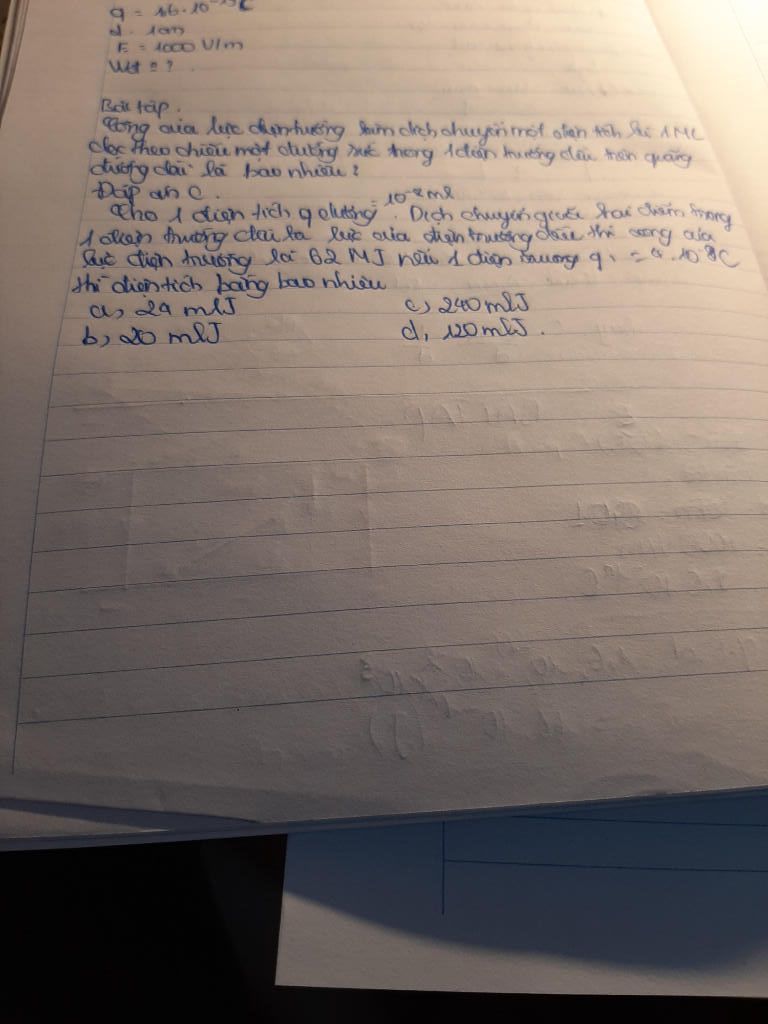 q = 16.10⁻¹⁹ C
d = 1cm
E = 1000 V/m
Wđ = ?
Bài tập.
Công của lực điện trường làm dịch chuyển một điện tích là 1MC
dọc theo chiều một đường sức trong 1 điện trường đều trên quãng
đường dài là bao nhiêu?
Đáp án C.
Cho 1 điện tích q dương = 10⁻⁸ ml. Dịch chuyển giữa hai điểm trong
1 điện trường đều là lực của điện trường đều thì công của
lực điện trường là 62 MJ nếu 1 điện trường q, = 4.10⁻⁸C
thì điện tích bằng bao nhiêu
a, 24 mlJ c, 240 mlJ
b, 20 mlJ d, 120 mlJ.